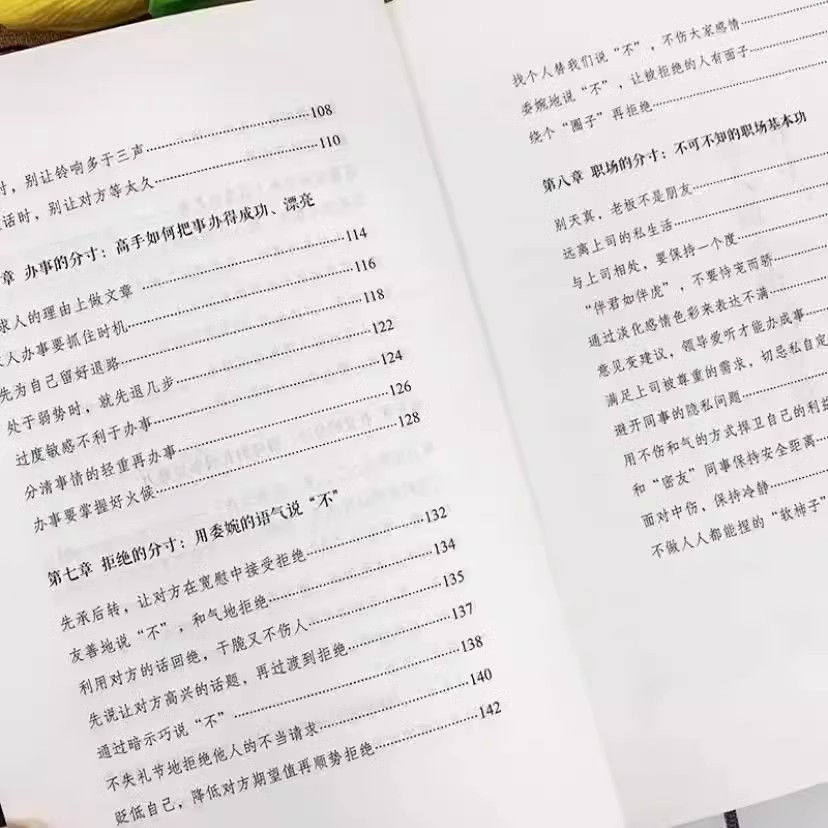 时，别让铃响多于三声……108
话时，别让对方等太久……110
章 办事的分寸：高手如何把事办得成功、漂亮
求人的理由上做文章……114
人办事要抓住时机……116
先为自己留好退路……118
处于弱势时，就先退几步……122
过度敏感不利于办事……124
分清事情的轻重再办事……126
办事要掌握好火候……128
第七章 拒绝的分寸：用委婉的语气说“不”
先承后转，让对方在宽慰中接受拒绝……132
友善地说“不”，和气地拒绝……134
利用对方的话回绝，干脆又不伤人……135
先说让对方高兴的话题，再过渡到拒绝……137
通过暗示巧说“不”……138
不失礼节地拒绝他人的不当请求……140
贬低自己，降低对方期望值再顺势拒绝……142
找个人替我们说“不”，不伤大家感情
委婉地说“不”，让被拒绝的人有面子
绕个“圈子”再拒绝
第八章 职场的分寸：不可不知的职场基本功
别天真，老板不是朋友
远离上司的私生活
与上司相处，要保持一个度
“伴君如伴虎”，不要恃宠而骄
通过淡化感情色彩来表达不满
意见变建议，领导爱听才能办成事
满足上司被尊重的需求，切忌私自定
避开同事的隐私问题
用不伤和气的方式捍卫自己的利益
和“密友”同事保持安全距离
面对中伤，保持冷静
不做人人都能捏的“软柿子”